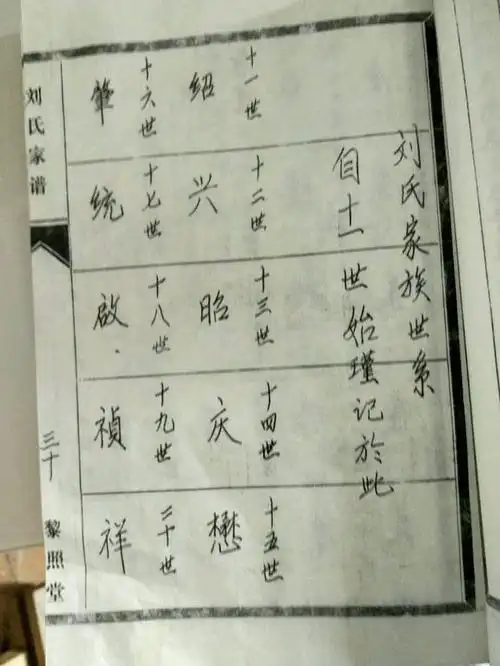 刘氏家族世系
自十一世始瑾记於此
十一世 十二世 十三世 十四世 十五世
绍 兴 昭 庆 懋
十六世 十七世 十八世 十九世 二十世
肇 统 啟 禎 祥
刘氏家谱
三十
黎照堂